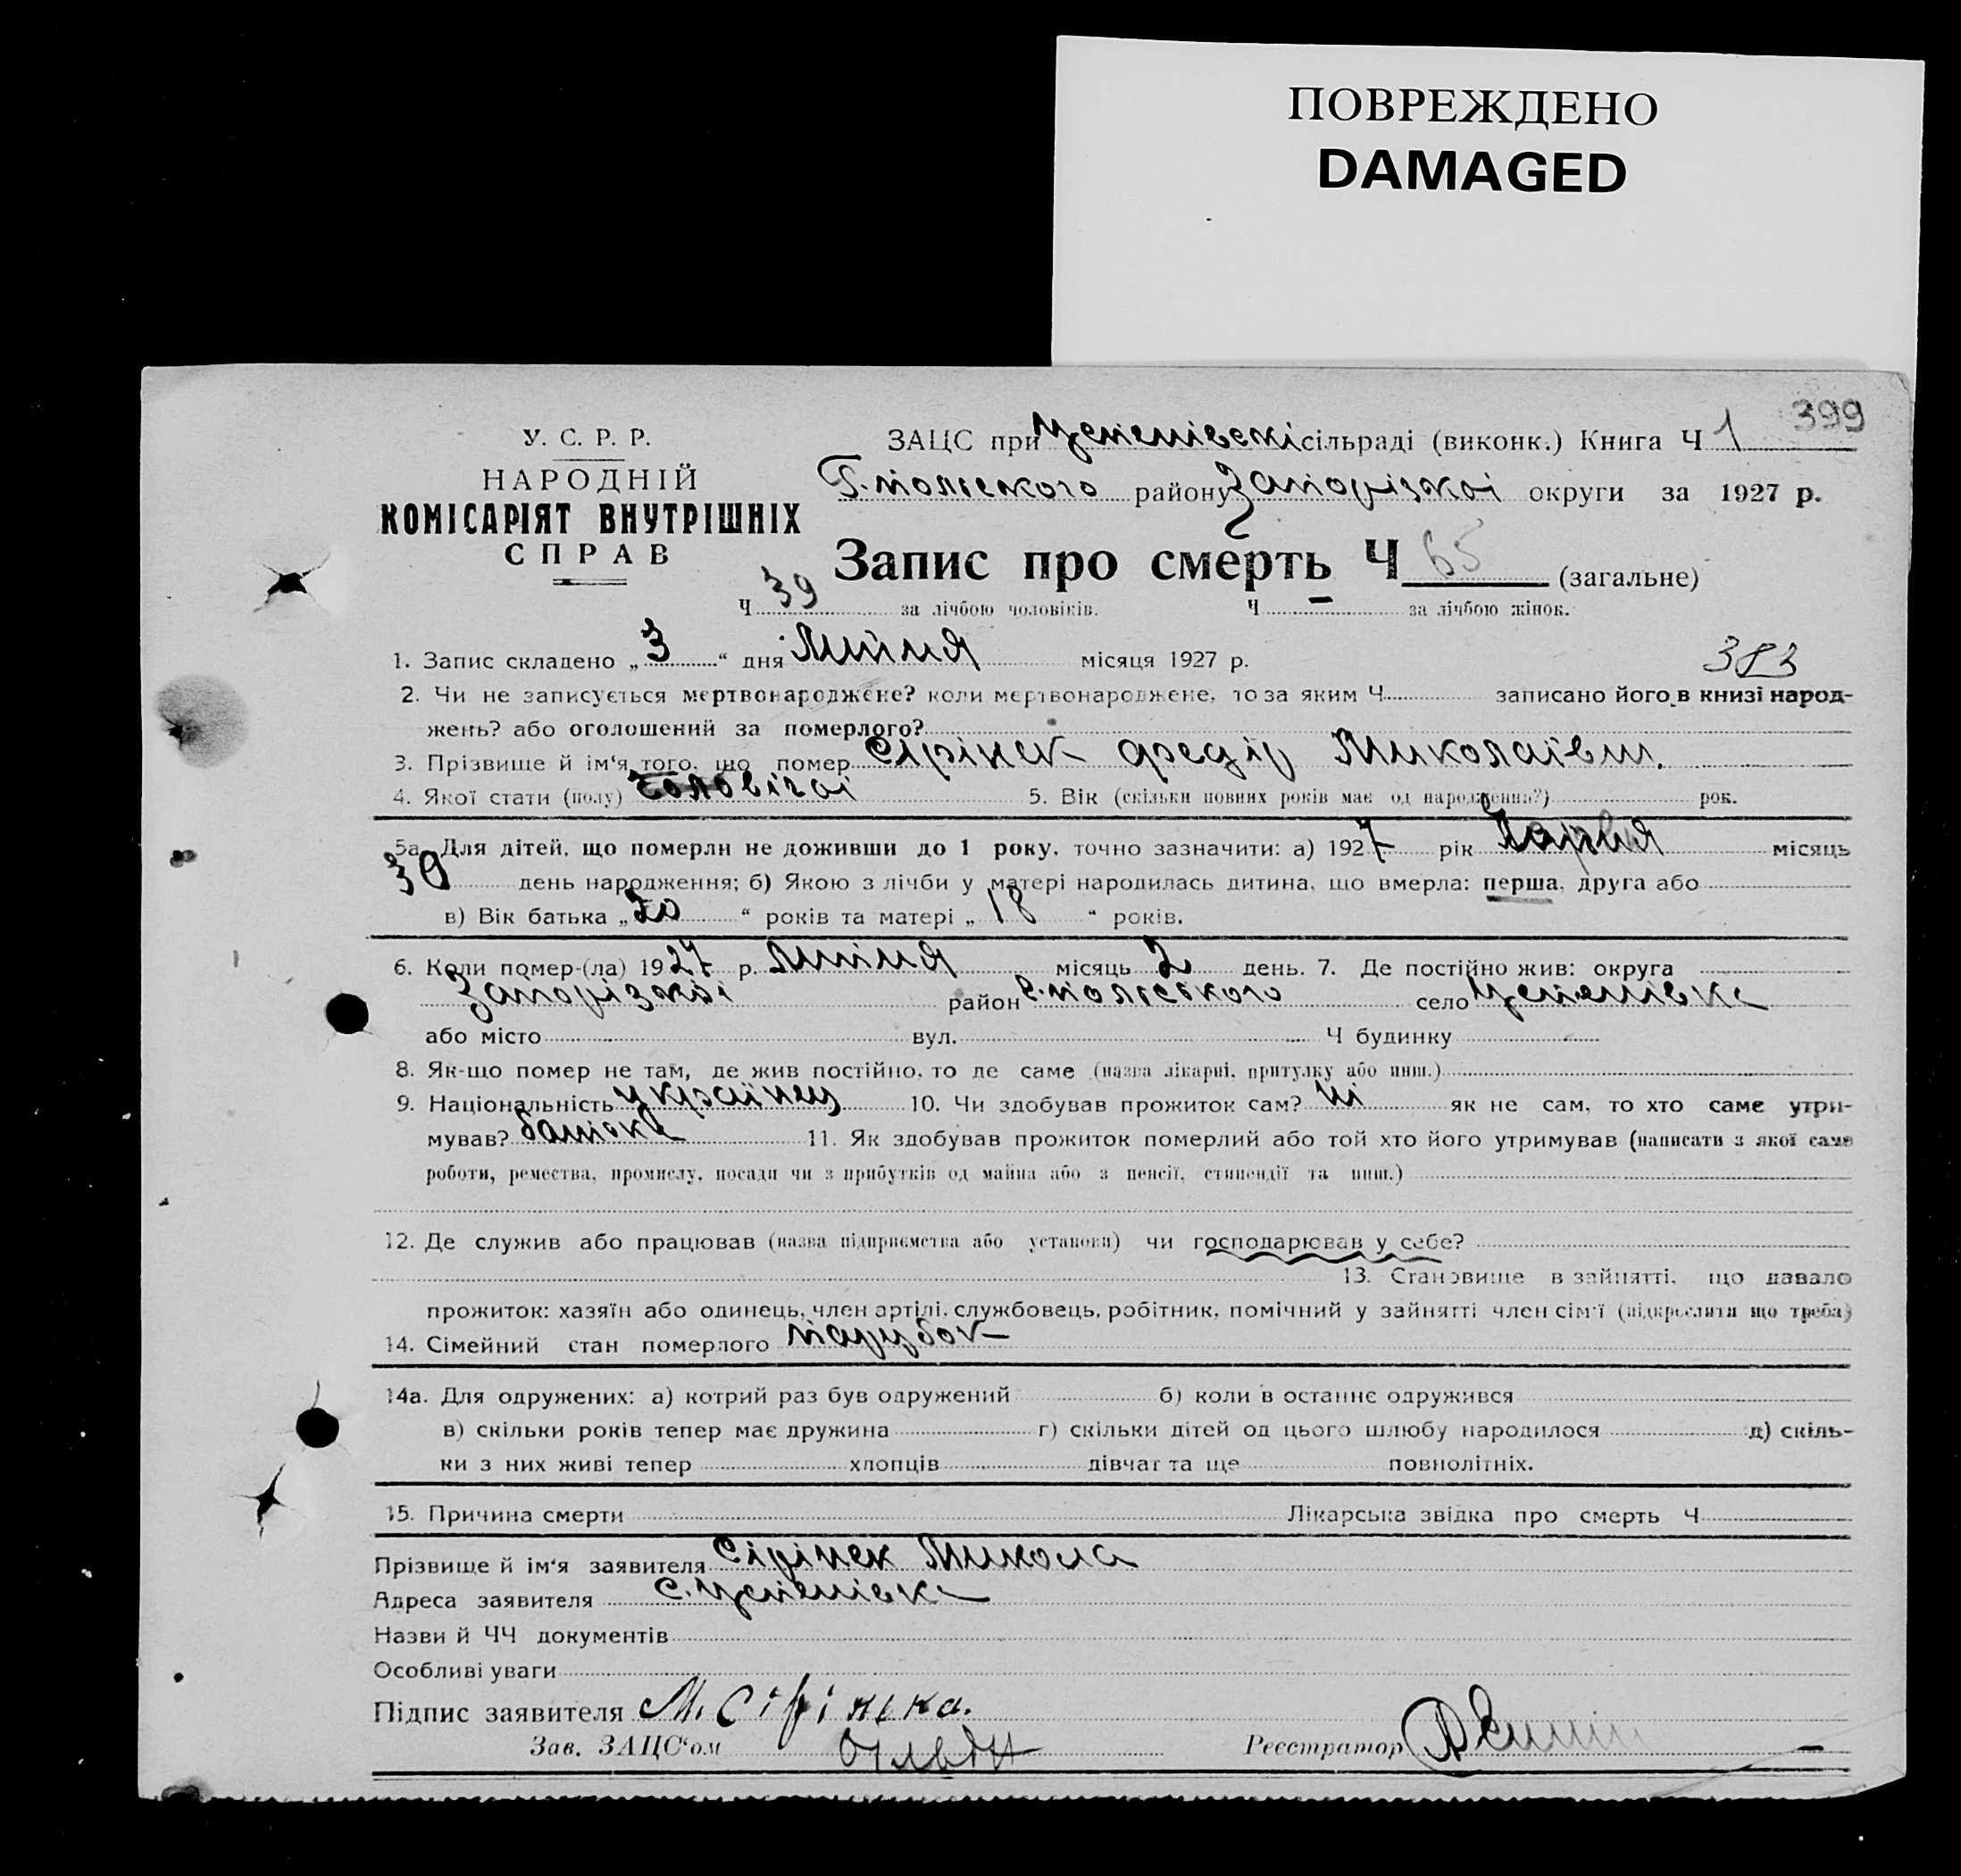 ПОВРЕЖДЕНО
DAMAGED
399
У. С. Р. Р.
НАРОДНІЙ
КОМІСАРІЯТ ВНУТРІШНІХ
СПРАВ
ЗАЦС при Успенівскі сільраді (виконк.) Книга Ч 1
Г.польского району Запорізкоі округи за 1927 р.
Запис про смерть Ч 65 (загальне)
Ч 39 за лічбою чоловіків. Ч — за лічбою жінок.
1. Запис складено „ 3 “ дня Липня місяця 1927 р.
383
2. Чи не записується мертвонароджене? коли мертвонароджене, то за яким Ч записано його в книзі народ-
жень? або оголошений за померлого?
3. Прізвище й ім‘я того, що помер Сірінек Федір Миколаївич.
4. Якої стати (полу) чоловічоі 5. Вік (скільки повних років має од народження?) рок.
5а. Для дітей, що померли не доживши до 1 року, точно зазначити: а) 1927 рік місяць
30 день народження; б) Якою з лічби у матері народилась дитина, що вмерла: перша, друга або
в) Вік батька „ 20 “ років та матері „ 18 “ років.
6. Коли помер-(ла) 1927 р. Липня місяць 2 день. 7. Де постійно жив: округа
Запорізкоі район Г.польського село Успенівка
або місто вул. Ч будинку
8. Як-що помер не там, де жив постійно, то де саме (назва лікарні, притулку або инш.)
9. Національність українец 10. Чи здобував прожиток сам? Ні як не сам, то хто саме утри-
мував? батько 11. Як здобував прожиток померлий або той хто його утримував (написати з якої саме
роботи, ремества, промислу, посади чи з прибутків од майна або з пенсії, стипендії та инш.)
12. Де служив або працював (назва підприємства або установи) чи господарював у себе?
13. Становище в зайнятті, що давало
прожиток: хазяїн або одинець, член артілі, службовець, робітник, помічний у зайнятті член сім‘ї (підкреслити що треба)
14. Сімейний стан померлого парубок
14а. Для одружених: а) котрий раз був одружений б) коли в останнє одружився
в) скільки років тепер має дружина г) скільки дітей од цього шлюбу народилося д) скіль-
ки з них живі тепер хлопців дівчат та ще повнолітніх.
15. Причина смерти Лікарська звідка про смерть Ч
Прізвище й ім‘я заявителя Сірінек Микола
Адреса заявителя с. Успенівка
Назви й ЧЧ документів
Особливі уваги
Підпис заявителя М. Сірінека.
Зав. ЗАЦС‘ом Реєстратор